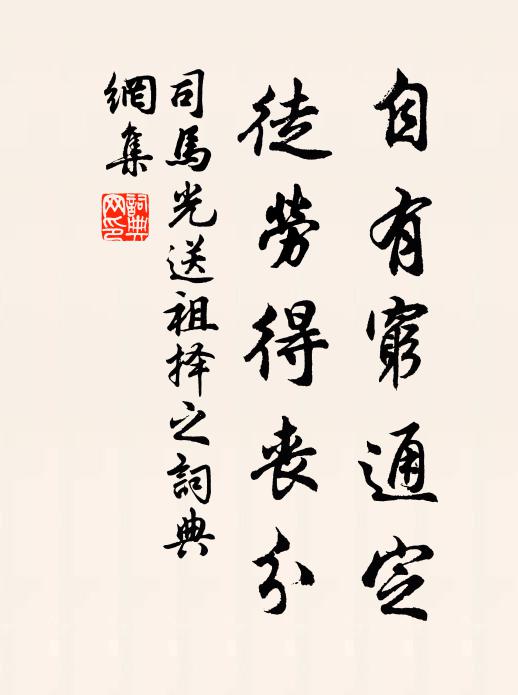 自有窮通定
徒勞得喪分
司馬光送祖择之詞典
網集
詞典
网印